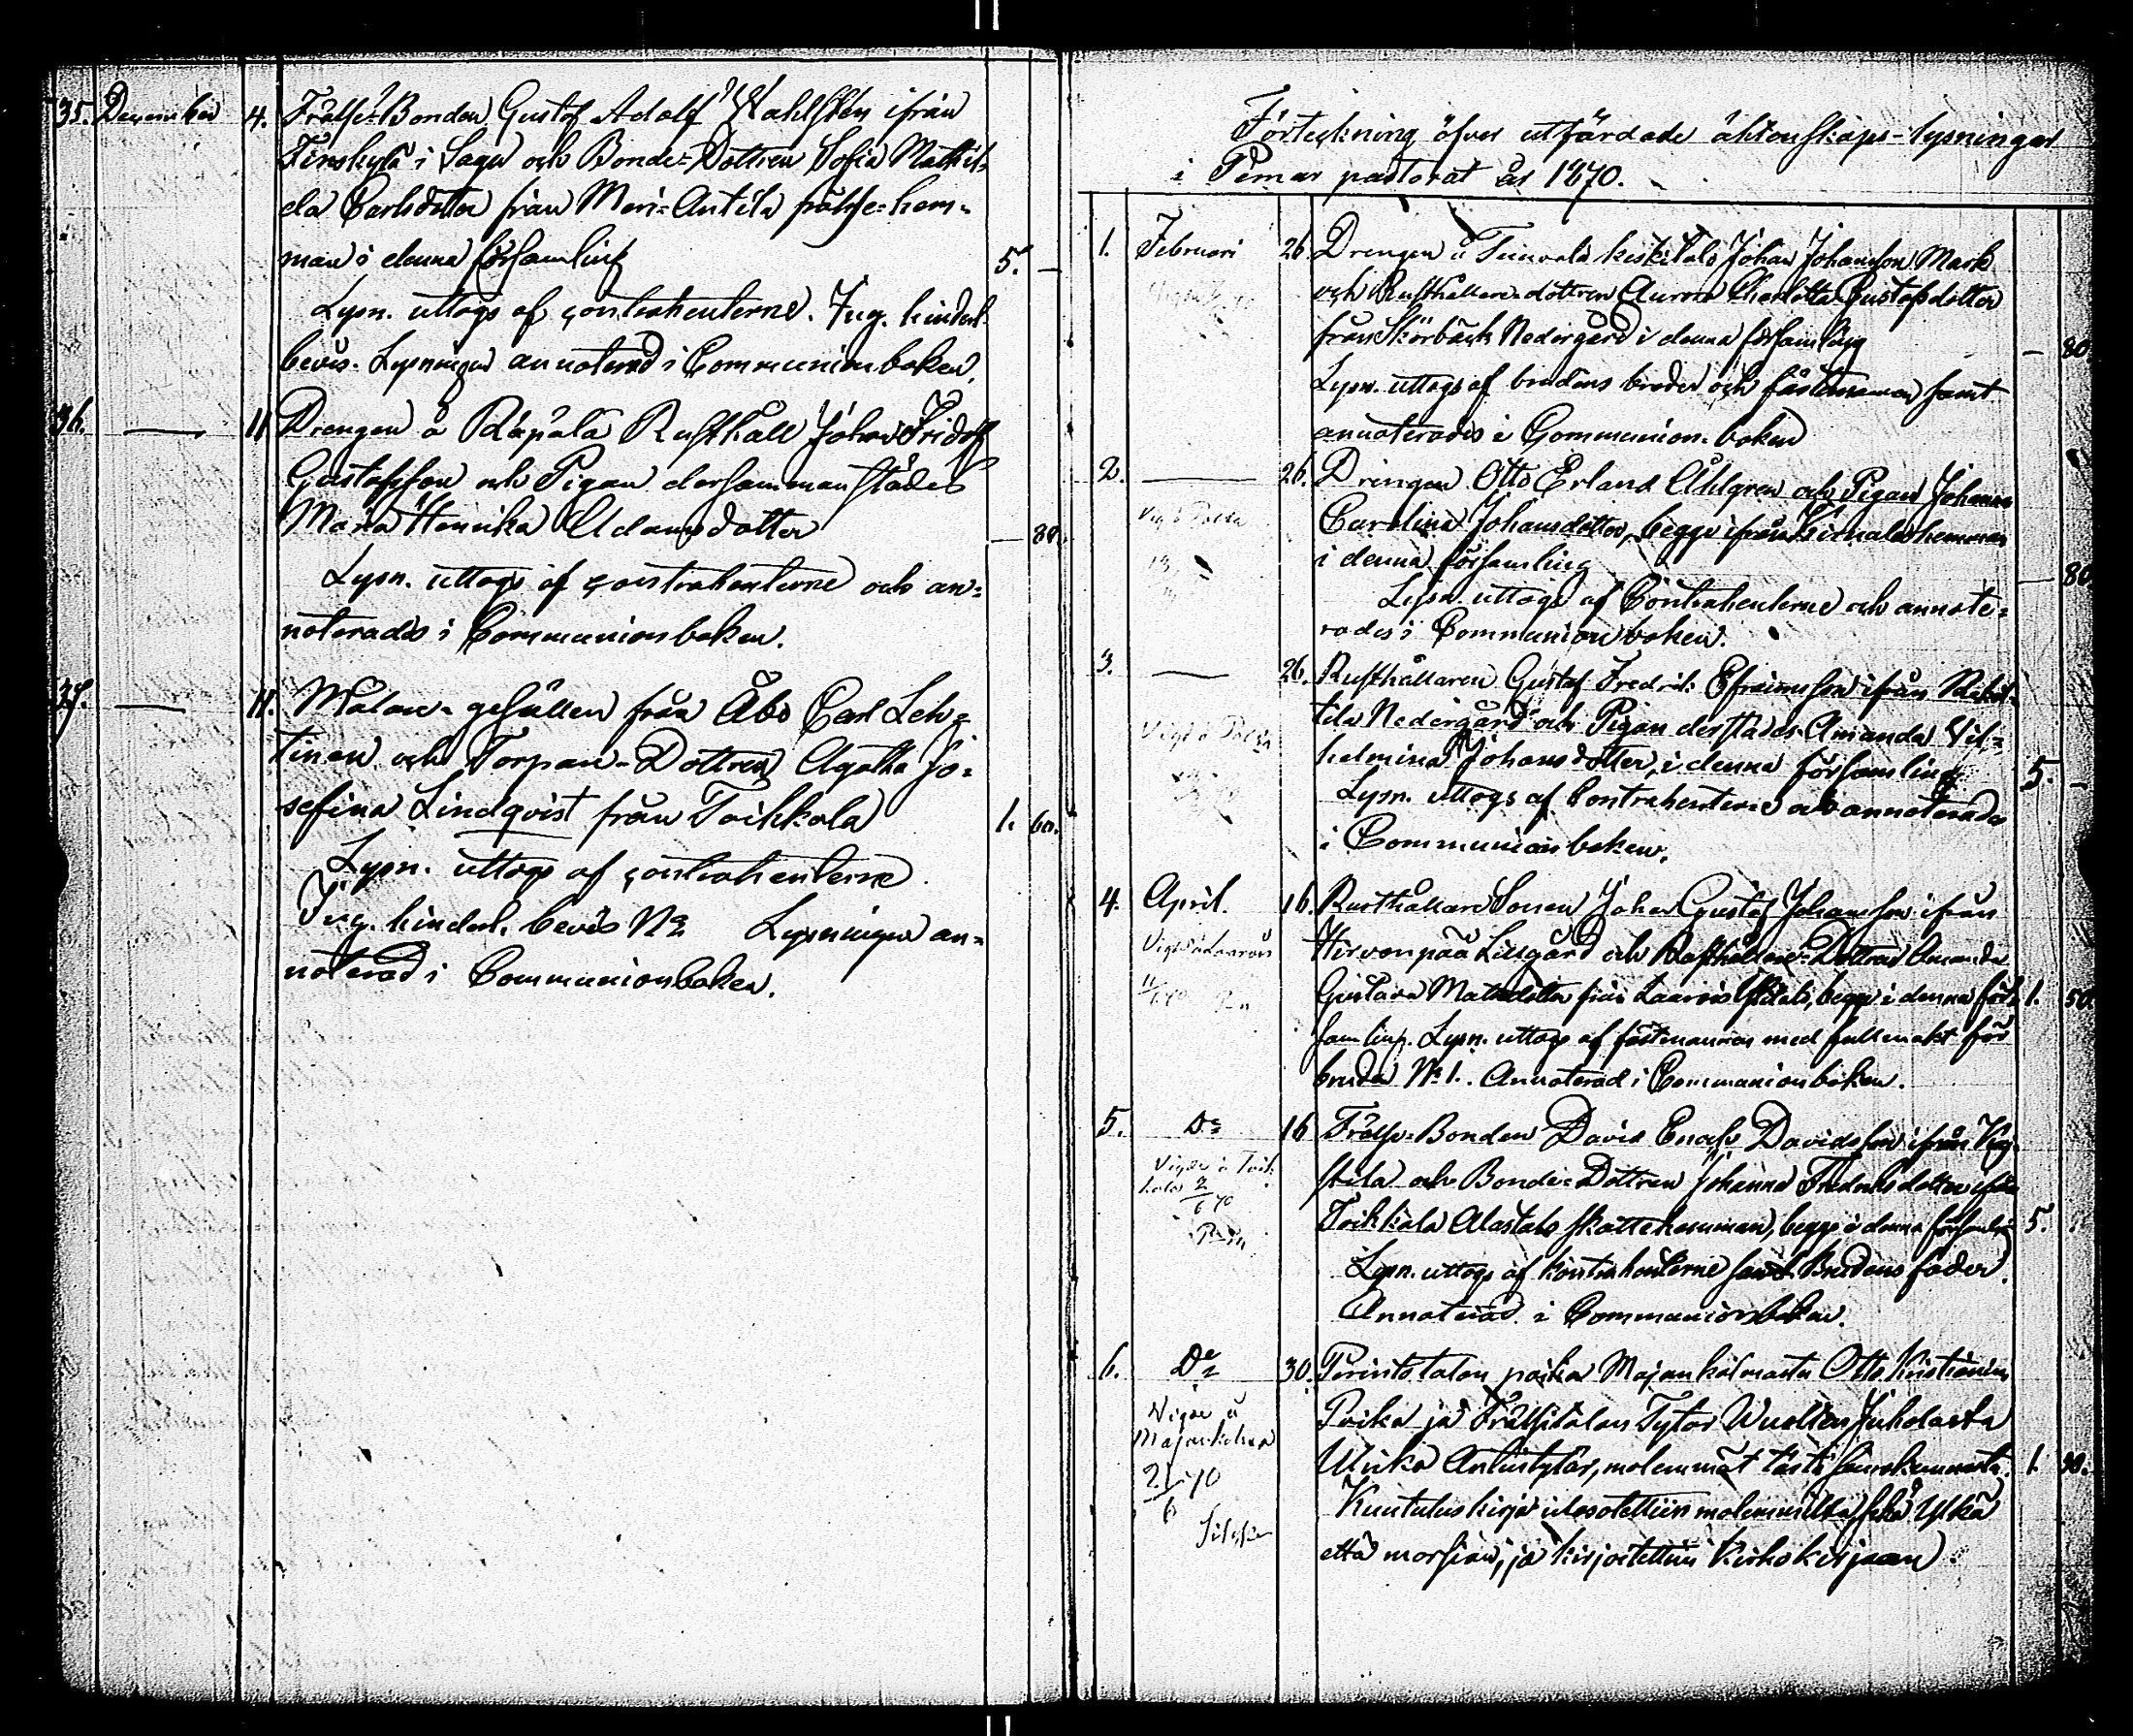 35. December 4. Frälse-Bonden Gustof Adolf Wahlsten ifrån
Finskylä i Sagu och Bonde-Dottren Sofia Mathil-
da Carlsdotter från Meri-Antila frälse-hem-
man i denna församling 5. —
Lysn. uttogs af contrahenterne. Fug. hinderl.
bevis. Lysningen annoterad i Communionboken.
36. — 11 Drengen å Räpälä Rusthåll Johan Fridolf
Gustafsson och Pigan dersammanstädes
Maria Henrika Adamsdotter — 80.
Lysn. uttogs af contrahenterne och an-
noterades i Communionboken.
37. — 11. Målare-gesällen från Åbo Carl Leh-
tinen och Torpare-Dottren Agatha Jo-
sefina Lindqvist från Toikkala 1. 60.
Lysn. uttogs af contrahenterne
Fug. hinderl. bevis No Lysningen an-
noterad i Communionboken.
Förteckning öfver utfärdade äktenskaps-lysningar
i Pemar pastorat år 1870.
1. Februari 26. Drengen å Johan Johansson Mark
och Rusthållare-dottren Aurora Charlotta Gustafsdotter
från Skörbäck Nedergård i denna församling — 80.
Lysn. uttogs af brudens broder och fästemannen samt
annoterades i Communion-boken
2. — 26. Drengen Otto Erland Åhlgren och Pigan Johanna
Carolina Johansdotter, begge ifrån hemman
i denna församling — 80.
Lysn. uttogs af Contrahenterne och annote-
rades i Communionboken.
3. — 26. Rusthållaren Gustaf Fredrik Efraimsson ifrån
tila Nedergård och Pigan derstädes Amanda Vil-
helmina Johansdotter, i denna församling 5. —
Lysn. uttogs af Contrahenterne och annoterades
i Communionboken.
4. April. 16. Rusthållare Sonen Johan Gustaf Johansson ifrån
Hirvonpää Lillgård och Rusthållare-Dottren Amanda
Gustava Matsdotter från begge i denna för- 1. 50.
samling. Lysn. uttogs af fästemannen med fullmakt för
bruden No 1. Annoterad i Communionboken.
5. Do 16 Frälse-Bonden David Enoch Davidsson ifrån
och Bonde-Dottren Johanna Fredriksdotter ifrån
Toikkala Alastalo skattehemman, begge i denna församling 5.
Vigde i Toik-
kala 2/6 70
Lysn. uttogs af Kontrahenterne samt Brudens fader.
Annoterad i Communionboken.
6. Do 30. Perintötalon poika Majankalmasta Otto Kristianin
Poika ja Frälsitalon Tytar Juholasta
Ulrika Antintytär, molemmat tästä seurakunnasta. 1.
Vigde å
2/6 70
Kuulutuskirja ulosotettiin molemmilta sekä Yljkä
että morsian, ja kirjoitettiin Kirkokirjaan.